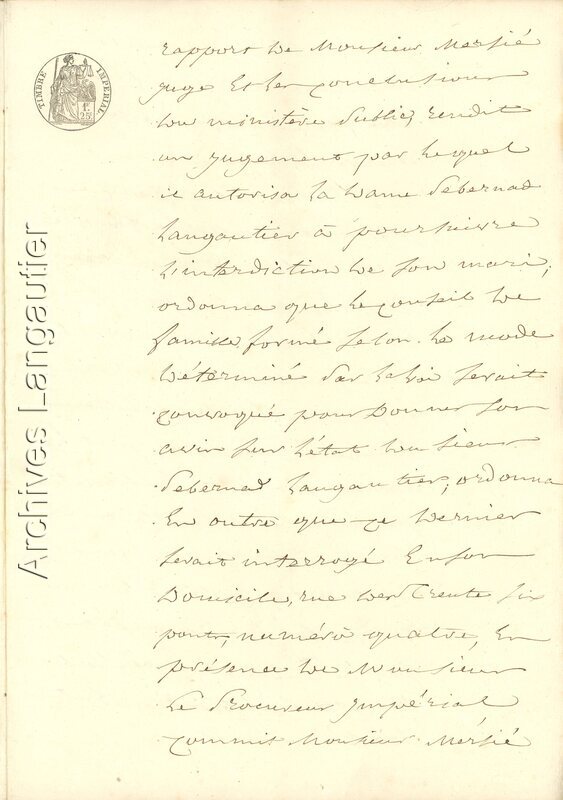 TIMBRE IMPERIAL
1 F.
25
Archives Langautier
rapport de Monsieur Mersié
juge Et les Conclusions
du ministère Public, rendit
un jugement par lequel
il autorisa la Dame Debernad
Langautier à poursuivre
L'interdiction de son mari,
ordonna que le Conseil de
famille, formé selon le mode
déterminé par la loi serait
Convoqué pour Donner son
avis sur l'état du sieur
Debernad Langautier; ordonna
En outre que ce dernier
serait interrogé En son
Domicile, rue des Trente six
ponts, numéro quatre, En
présence de Monsieur
Le Procureur Impérial
Commit Monsieur Mersié